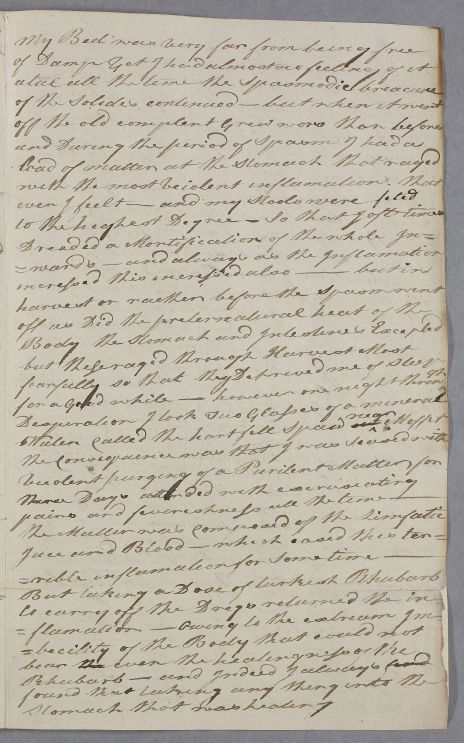 My Bed was very far from being free
of Damp yet I had almost no feeling of it
atall all the time the Spasmodic
of the Solides continued — but when it went
off the old complent Grew wors than before
and During the period of Spasm I had a
load of matter at the Stomach that raged
with the most veiolent inflamation that
ever I felt — and my Stools were feted
to the highest Degree — So that I oft times
Dreeded a Mortification of the whole In-
=wards — and always as the Inflamation
incressed this incressed also — but in
harvest or raether before the Spasm went
off as Did the preternatural heat of the
Body the Stomach and Intestines Excepted
but these raged through Harvest Most
fearfully so that they Detrived me of Sleep
for a Good while — however one night through
Desperation I took two Glasses of a mineral
Water called the hartfell Spaw near Moffat
the Consequence was that I was seased with
veiolent purging of a Purilent Matter for
three Days attended with exerusiating
pains and feverishness all the time —
the Matter was Composed of the Limfatic
Juce and Blood — which eased this ter=
=rible inflamation for some time —
But taking a Dose of turkest Rhubarb
to carry off the Dregs returned the in=
=flamation — owing to the extream Im=
=becility of the Body that could not
bear even the healingness of the
Rhubarb — and indeed I always
found that taking any thing into the
Stomach that was healing